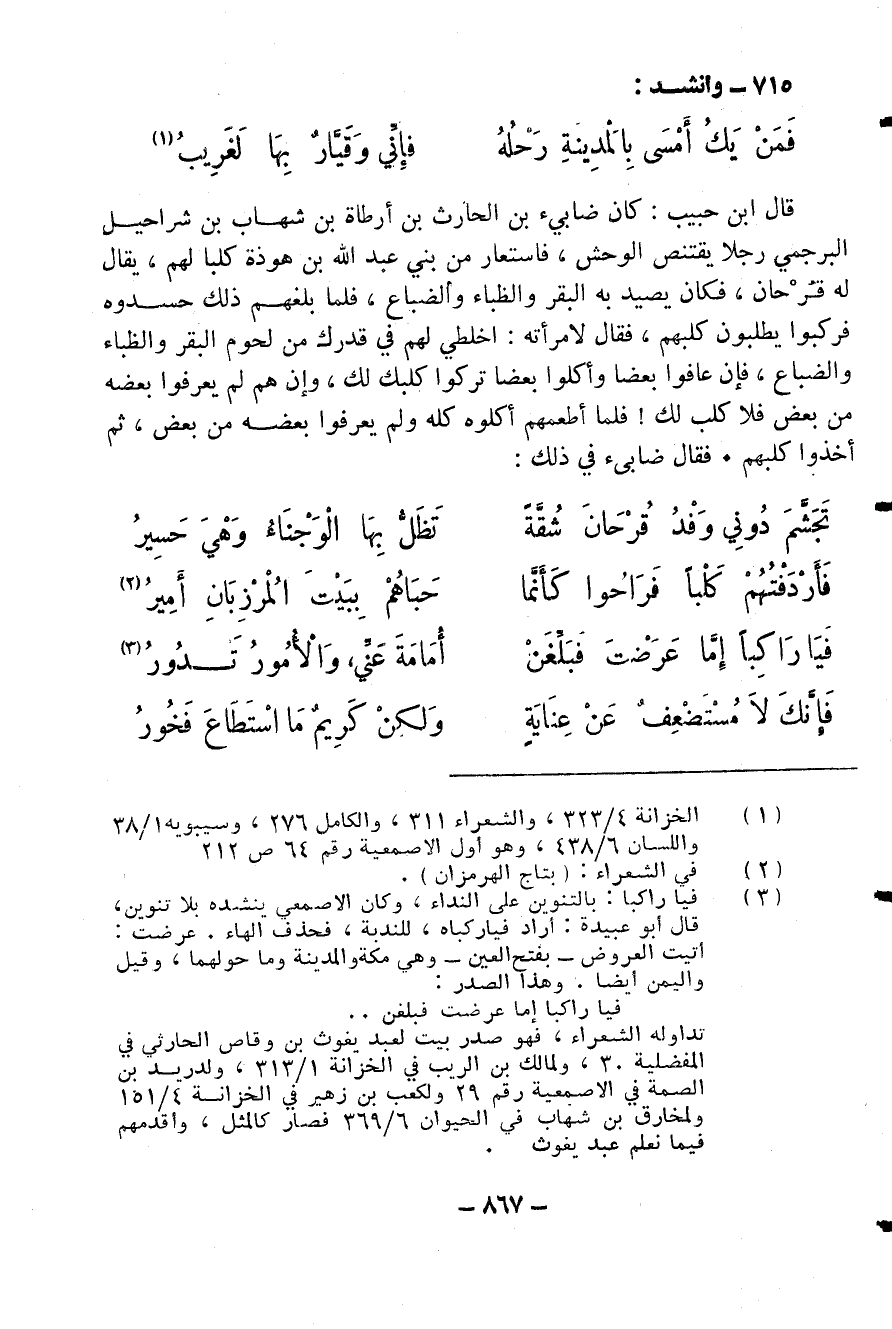 ٧١٥ ــ وانشـــد :
فَمَنْ يَكُ أَمْسَى بِالْمَدِينَةِ رَحْلُهُ فَإِنِّي وَقَيَّارٌ بِهَا لَغَرِيبُ(١)
قال ابن حبيب : كان ضابيء بن الحارث بن أرطاة بن شهـاب بن شراحيـل
البرجمي رجلا يقتنص الوحش ، فاستعار من بني عبد الله بن هوذة كلبا لهم ، يقال
له قُـرْحان ، فـكان يصيد به البقر والظباء والضباع ، فلما بلغهـم ذلك حسـدوه
فركبوا يطلبون كلبهم ، فقال لامرأته : اخلطي لهم في قدرك من لحوم البقر والظباء
والضباع ، فإن عافوا بعضا وأكلوا بعضا تركوا كلبك لك ، وإن هم لم يعرفوا بعضه
من بعض فلا كلب لك ! فلما أطعمهم أكلوه كله ولم يعرفوا بعضـه من بعض ، ثم
أخذوا كلبهم ٠ فقال ضابىء في ذلك :
تَجَشَّمَ دُونِي وَفْدُ قُرْحَانَ شُقَّةً تَظَلُّ بِهَا الْوَجْنَاءُ وَهْيَ حَسِيرُ
فَأَرْدَفْتُهُمْ كَلْباً فَرَاحُوا كَأَنَّمَا حَبَاهُمْ بِبَيْتِ الْمُرْزِبَانِ أَمِيرُ(٢)
فَيَا رَاكِباً إِمَّا عَرَضْتَ فَبَلِّغَنْ أُمَامَةَ عَنِّي، وَالْأُمُورُ تَـــدُورُ(٣)
فَإِنَّكَ لاَ مُسْتَضْعِفٌ عَنْ عِنَايَةٍ وَلَكِنْ كَرِيمٌ مَا اسْتَطَاعَ فَخُورُ
(١) الخزانة ٣٢٣/٤ ، والشعراء ٣١١ ، والكامل ٢٧٦ ، وسيبويه ٣٨/١
واللسان ٤٣٨/٦ ، وهو أول الاصمعية رقم ٦٤ ص ٢١٢
(٢) في الشعراء : ( بتاج الهرمزان ) .
(٣) فيا راكبا : بالتنوين على النداء ، وكان الاصمعي ينشده بلا تنوين،
قال أبو عبيدة : أراد فياركباه ، للندبة ، فحذف الهاء . عرضت :
أتيت العروض ــ بفتح العين ــ وهي مكة والمدينة وما حولهما ، وقيل
واليمن أيضا . وهذا الصدر :
فيا راكبا إما عرضت فبلغن . .
تداوله الشعراء ، فهو صدر بيت لعبد يغوث بن وقاص الحارثي في
المفضلية ٣٠ ، ولمالك بن الريب في الخزانة ٣١٣/١ ، ولدريـد بن
الصمة في الاصمعية رقم ٢٩ ولكعب بن زهير في الخزانـة ١٥١/٤
ولمخارق بن شهاب في الحيوان ٣٦٩/٦ فصار كالمثل ، وأقدمهم
فيما نعلم عبد يغوث .
ــ ٨٦٧ ــ